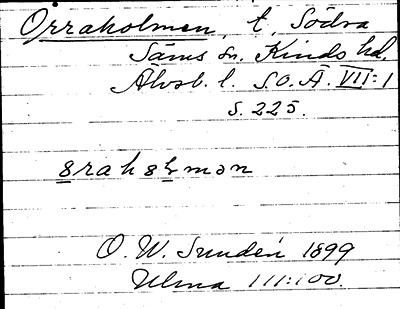 Orraholmen, t, Södra
Säms sn. Kinds hd.
Älvsb. l. S.O.Ä. VII:1
s. 225.
O. W. Sundén 1899
Ulma 111:100.